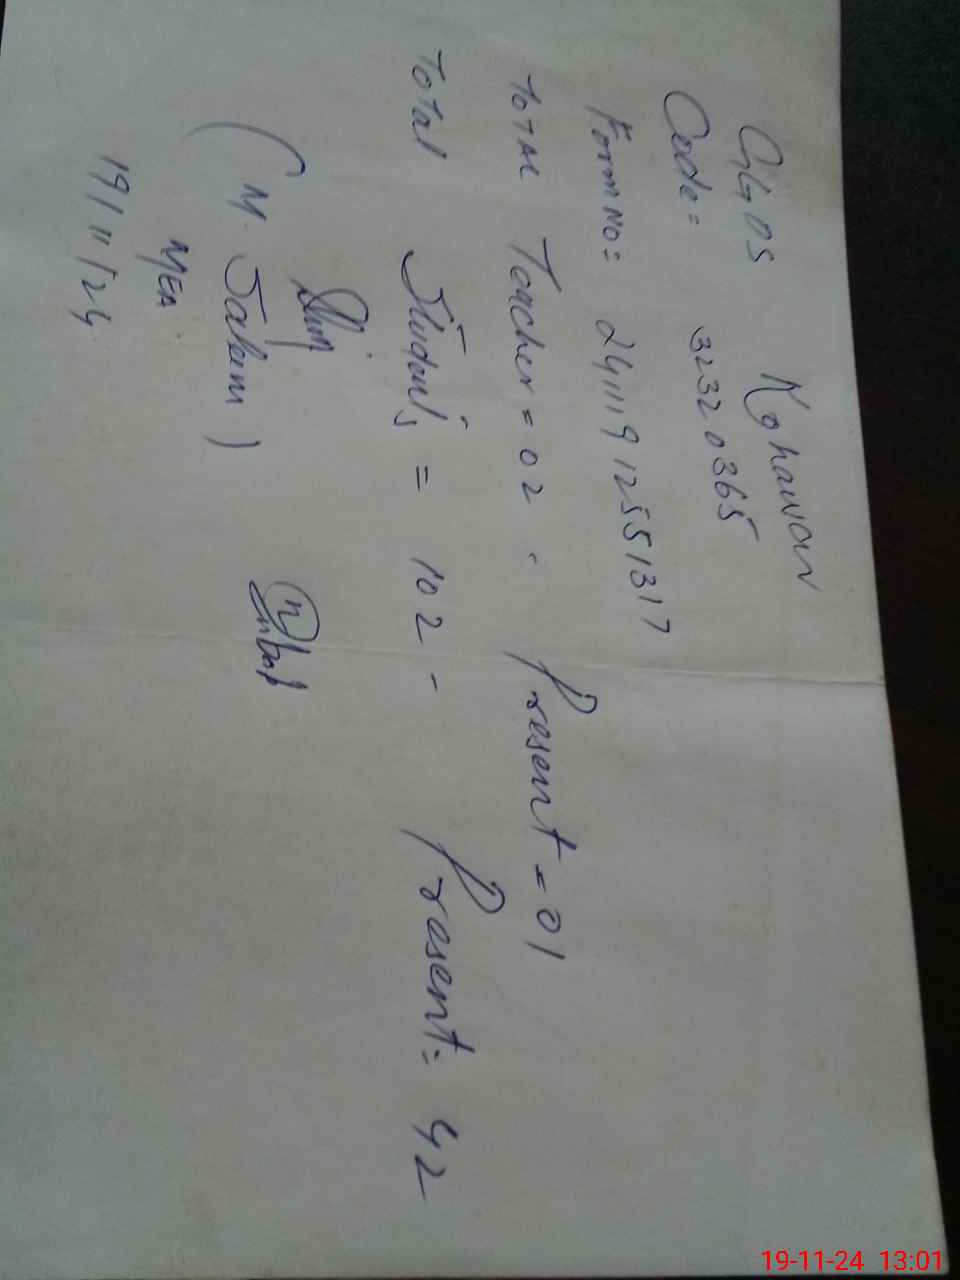 GGPS Kohawar
Code = 32320365
Form No = 241119 12551317
Total Teacher = 02 . Present = 01
Total Students = 102 - Present = 42
( M. Saleem )
MEA
19/11/24
19-11-24 13:01